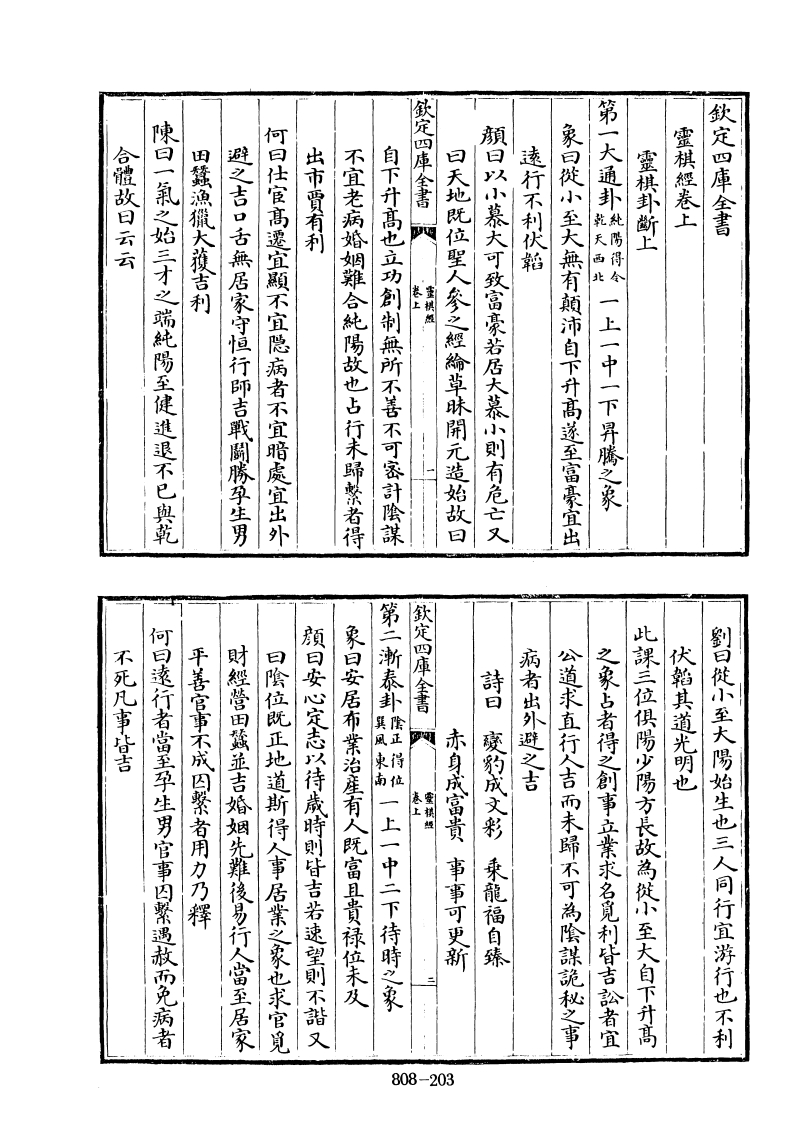 欽定四庫全書
靈棋經卷上
靈棋卦斷上
第一大通卦純陽得令乾天西北一上一中一下昇騰之象
象曰從小至大無有顛沛自下升髙遂至富豪宜出
逺行不利伏韜
顔曰以小慕大可致富豪若居大慕小則有危亡又
曰天地既位聖人參之經綸草昧開元造始故曰
欽定四庫全書
靈棋經
卷上
一
自下升髙也立功創制無所不善不可宻計陰謀
不宜老病婚姻難合純陽故也占行未歸繫者得
出市賈有利
何曰仕宦髙遷宜顯不宜隠病者不宜暗處宜出外
避之吉口舌無居家守恒行師吉戰鬭勝孕生男
田蠶漁獵大獲吉利
陳曰一氣之始三才之端純陽至健進退不已與乾
合體故曰云云
劉曰從小至大陽始生也三人同行宜游行也不利
伏韜其道光明也
此課三位俱陽少陽方長故為從小至大自下升髙
之象占者得之創事立業求名覓利皆吉訟者宜
公道求直行人吉而未歸不可為陰謀詭秘之事
病者出外避之吉
詩曰　變豹成文彩　乗龍福自臻
赤身成富貴　事事可更新
欽定四庫全書
靈棋經
卷上
二
第二漸泰卦陰正得位巽風東南一上一中二下待時之象
象曰安居布業治產有人既富且貴禄位未及
顔曰安心定志以待歲時則皆吉若速望則不諧又
曰陰位既正地道斯得人事居業之象也求官覓
財經營田蠶並吉婚姻先難後易行人當至居家
平善官事不成囚繫者用力乃釋
何曰逺行者當至孕生男官事囚繫遇赦而免病者
不死凡事皆吉
808-203